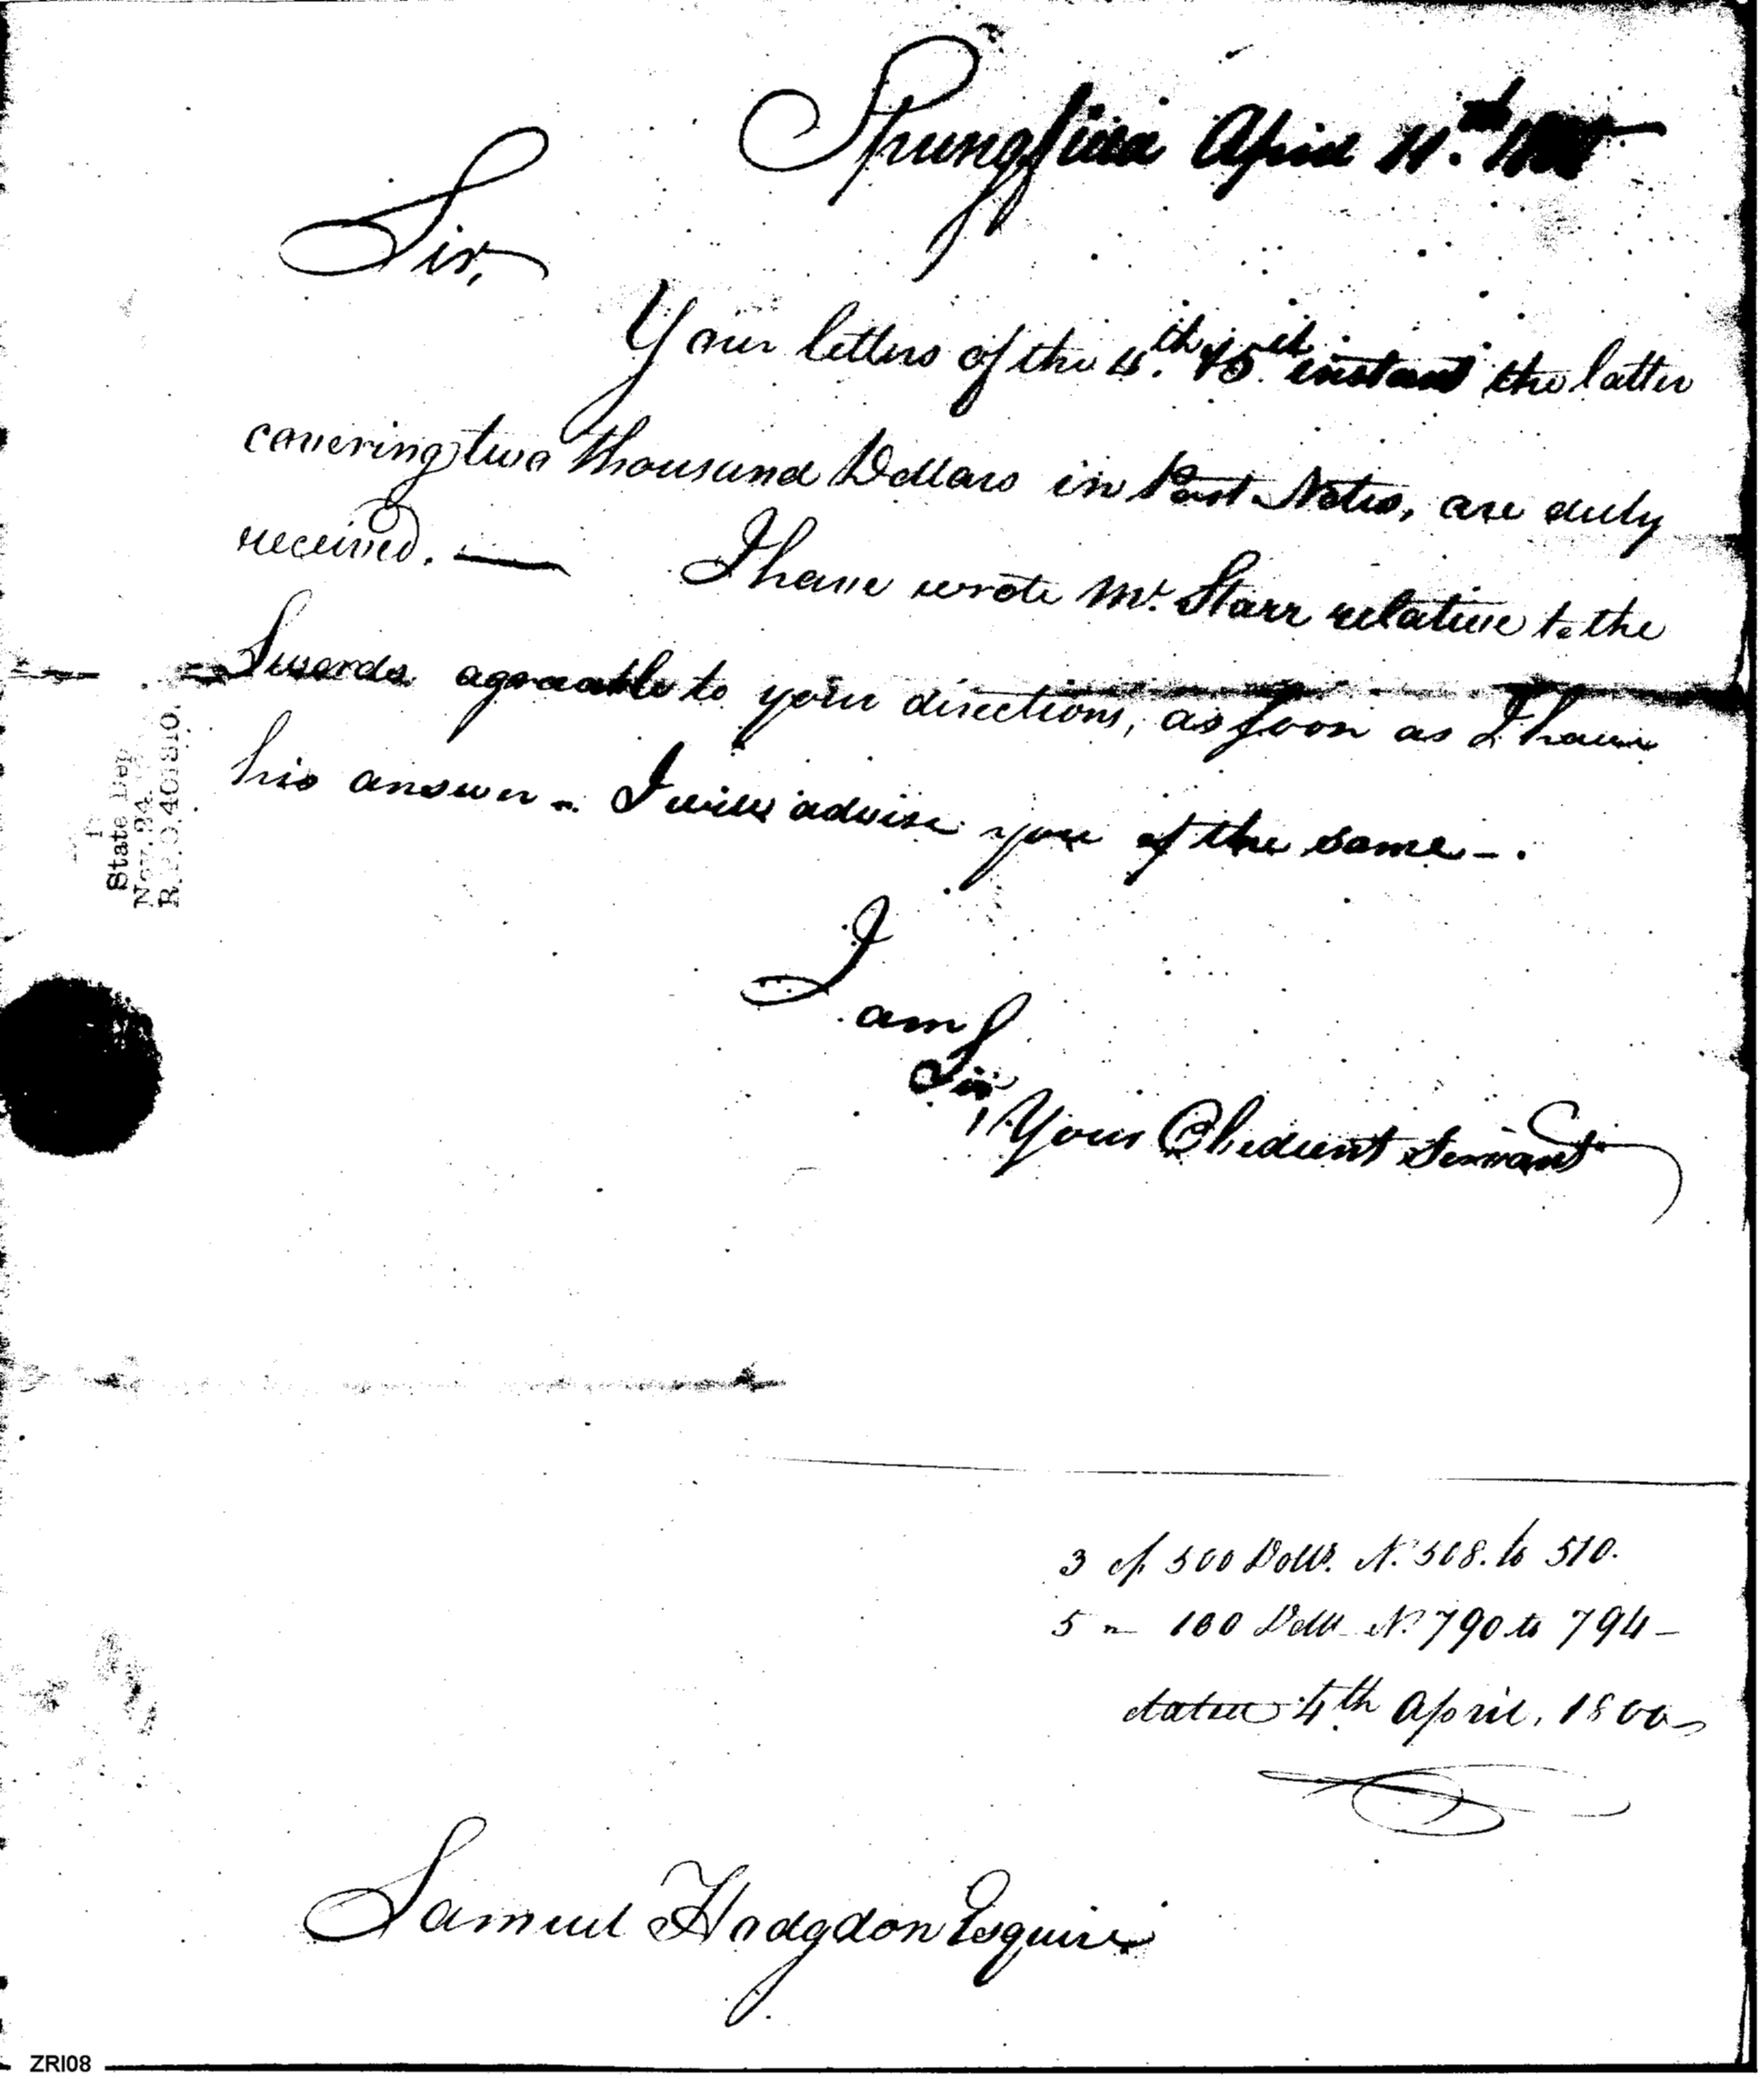 Springfield April 11.th
Sir,
Your letters of the 4.th & 5.th instant the latter
covering two thousand Dollars in Post Notes, are duly
received. — I have wrote Mr. Starr relative to the
Swords agreeable to your directions, as soon as I have
his answer - I will advise you of the same - .
I
am
Sir,
Your Obedient Servant
State Dep
Nov. 24.
R. 401810.
3 of 500 Dolls. No. 508. to 510.
5 " 100 Dolls No. 790 to 794 -
dated 4th April, 1800
Samuel Hodgdon Esquire
ZRI08